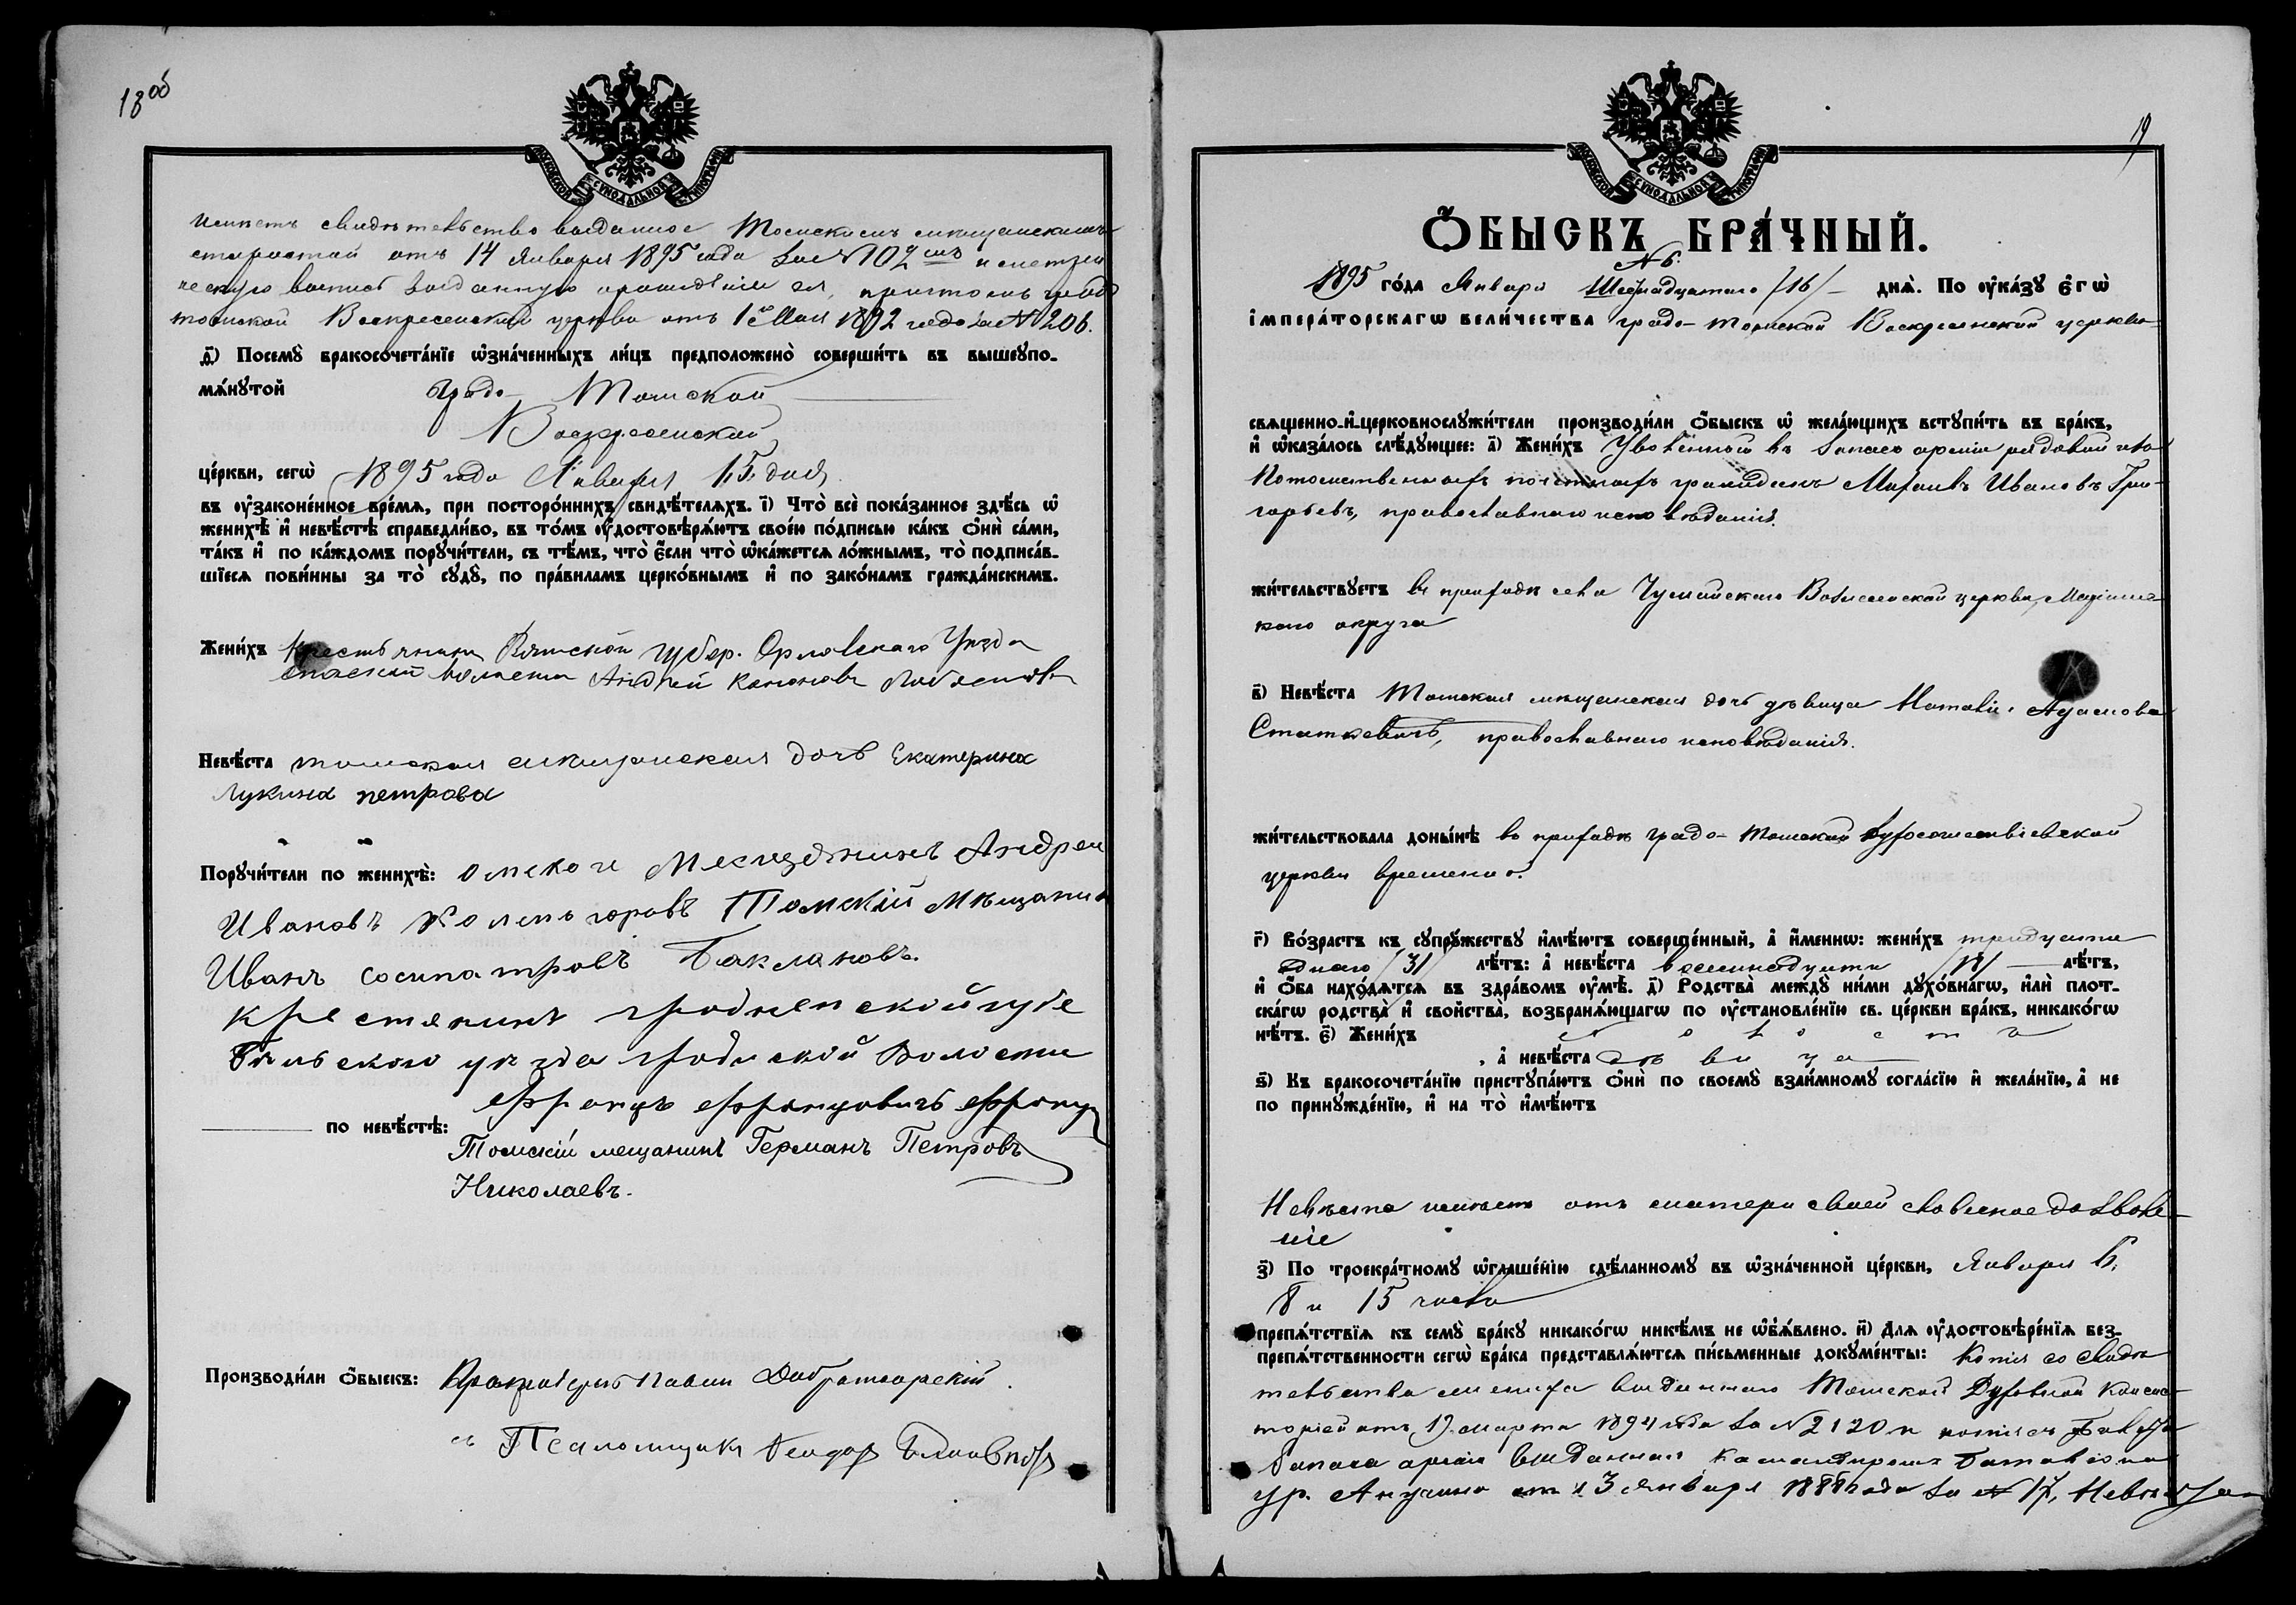 18 об
МОСКОВСКОЙ СѴНОДАЛЬНОЙ ТИПОГРАФІИ
имѣетъ свидѣтельство выданное Томскимъ мѣщанскимъ
старостой отъ 14 Января 1895 года за № 102 мъ и метри
ческую выпись выданную причтомъ градо
томской Воскресенской церкви отъ 1 Мая 1892 года за № 206.
ѳ҃) Посемꙋ̀ бракосочета́нїе ѡ҆зна́ченныхъ ли́цъ предположено̀ соверши́ть въ вышеꙋпо-
мѧ́нꙋтой Градо- Томской
Воскресенской
це́ркви, сегѡ̀ 1895 года Января 15 дня
въ ᲂу҆законе́нное вре́мѧ, при посторо́ннихъ свидѣ́телѧхъ. і҃) Что̀ всѐ пока́занное здѣ́сь ѡ҆
женихѣ̀ и҆ невѣ́стѣ справедли́во, въ то́мъ ᲂу҆достовѣрѧ́ютъ свое́ю по́дписью ка́къ ѻ҆нѝ са́ми,
та́къ и҆ по ка́ждомъ порꙋчи́тели, съ тѣ́мъ, что̀ є҆́сли что̀ ѡ҆ка́жетсѧ ло́жнымъ, то̀ подписа́в-
шїесѧ пови́нны за то̀ сꙋдꙋ̀, по пра́виламъ церко́внымъ и҆ по зако́намъ гражда́нскимъ.
Жени́хъ Крестьянинъ Вятской губер. Орловскаго Уѣзда
Спаской волости Андрей Кононовъ
Невѣ́ста томская мѣщанская дочь Екатерина
Лукина петрова
Порꙋчи́тели по женихѣ̀: омской Месчеднинъ Андреи
Ивановъ Колмогоровъ Томскій Мѣщанин
Иванъ сосипатровъ Баклановъ.
крестянинъ гродненской губе
Бѣльского уѣзда гродиской Волости
Францъ Францовичъ Францу
по невѣ́стѣ: Томскій мещанинъ Германъ Петровъ
Николаевъ.
Производи́ли ѻ҆́быскъ: Протоіерей Павелъ Добротворскій
Псаломщикъ Феодоръ
19
МОСКОВСКОЙ СѴНОДАЛЬНОЙ ТИПОГРАФІИ
Ѻ҆́БЫСКЪ БРА́ЧНЫЙ.
№ 6.
1895 го́да Января Шеснадцатаго /16/ днѧ̀. По ᲂу҆ка́зꙋ Є҆гѡ̀
і҆мпера́торскагѡ вели́чества градо-томской Воскресенской церкви
свѧщенно-и҆-церковнослꙋжи́тели производи́ли ѻ҆́быскъ ѡ҆ жела́ющихъ встꙋпи́ть въ бра́къ,
и҆ ѡ҆каза́лось слѣ́дꙋющее: а҃) Жени́хъ Уволенный въ запасъ арміи рядовой изъ
Потомственныхъ почетныхъ гражданъ Михаилъ Ивановъ Гри-
горьевъ, православнаго исповѣданія.
жи́тельствꙋетъ въ приходѣ села Чумайскаго Вознесенской церкви, Маріинс-
каго округа
в҃) Невѣ́ста Томская мѣщанская дочь дѣвица Наталія Адамова
Статкевичъ, православнаго исповѣданія.
жи́тельствовала доны́нѣ въ приходѣ градо-томской Духосошествіевской
церкви временно.
г҃) Во́зрастъ къ сꙋпрꙋ́жествꙋ и҆мѣ́ютъ соверше́нный, а҆ и҆́меннѡ: жени́хъ тридцати
одного /31/ лѣ́тъ: а҆ невѣ́ста восемнадцати /18/ лѣ́тъ,
и҆ ѻ҆́ба нахо́дѧтсѧ въ здра́вомъ ᲂу҆мѣ̀. д҃) Родства̀ междꙋ̀ ни́ми дꙋхо́внагѡ, и҆лѝ плот-
ска́гѡ родства̀ и҆ свойства̀, возбранѧ́ющагѡ по ᲂу҆становле́нїю св. це́ркви бра́къ, никако́гѡ
нѣ́тъ. є҃) Жени́хъ холостъ
, а҆ невѣ́ста дѣвица
ѕ҃) Къ бракосочета́нїю пристꙋпа́ютъ ѻ҆нѝ по своемꙋ̀ взаи́мномꙋ согла́сїю и҆ жела́нїю, а҆ не
по принꙋжде́нїю, и҆ на то̀ и҆мѣ́ютъ
Невѣста имѣетъ отъ матери своей словесное дозволе-
ніе
з҃) По троекра́тномꙋ ѡ҆глаше́нїю сдѣ́ланномꙋ въ ѡ҆зна́ченной це́ркви, Января 6,
8 и 15 числа
препѧ́тствїѧ къ семꙋ̀ бра́кꙋ никако́гѡ никѣ́мъ не ѡ҆б̾ѧ́влено. и҃) Длѧ ᲂу҆достовѣре́нїѧ без-
препѧ́тственности сегѡ̀ бра́ка представлѧ́ютсѧ пи́сьменные докꙋме́нты: Копія со свидѣ
тельства жениха выданнаго Томской Духовной Консис-
торіей отъ 19 марта 1894 года за № 2120 и копія съ билета
запаса арміи выданная командиромъ баталіона
ур. 13 января 1888 года за № 17, Невѣста